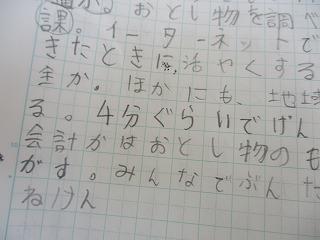 がな おとし物を調べ
課。イーターネットで
きたときに、活やくする
全か。ほかにも、地域
る。4分ぐらいでげん
会計がはおとし物のも
がす。みんなでぶんた
ねけん